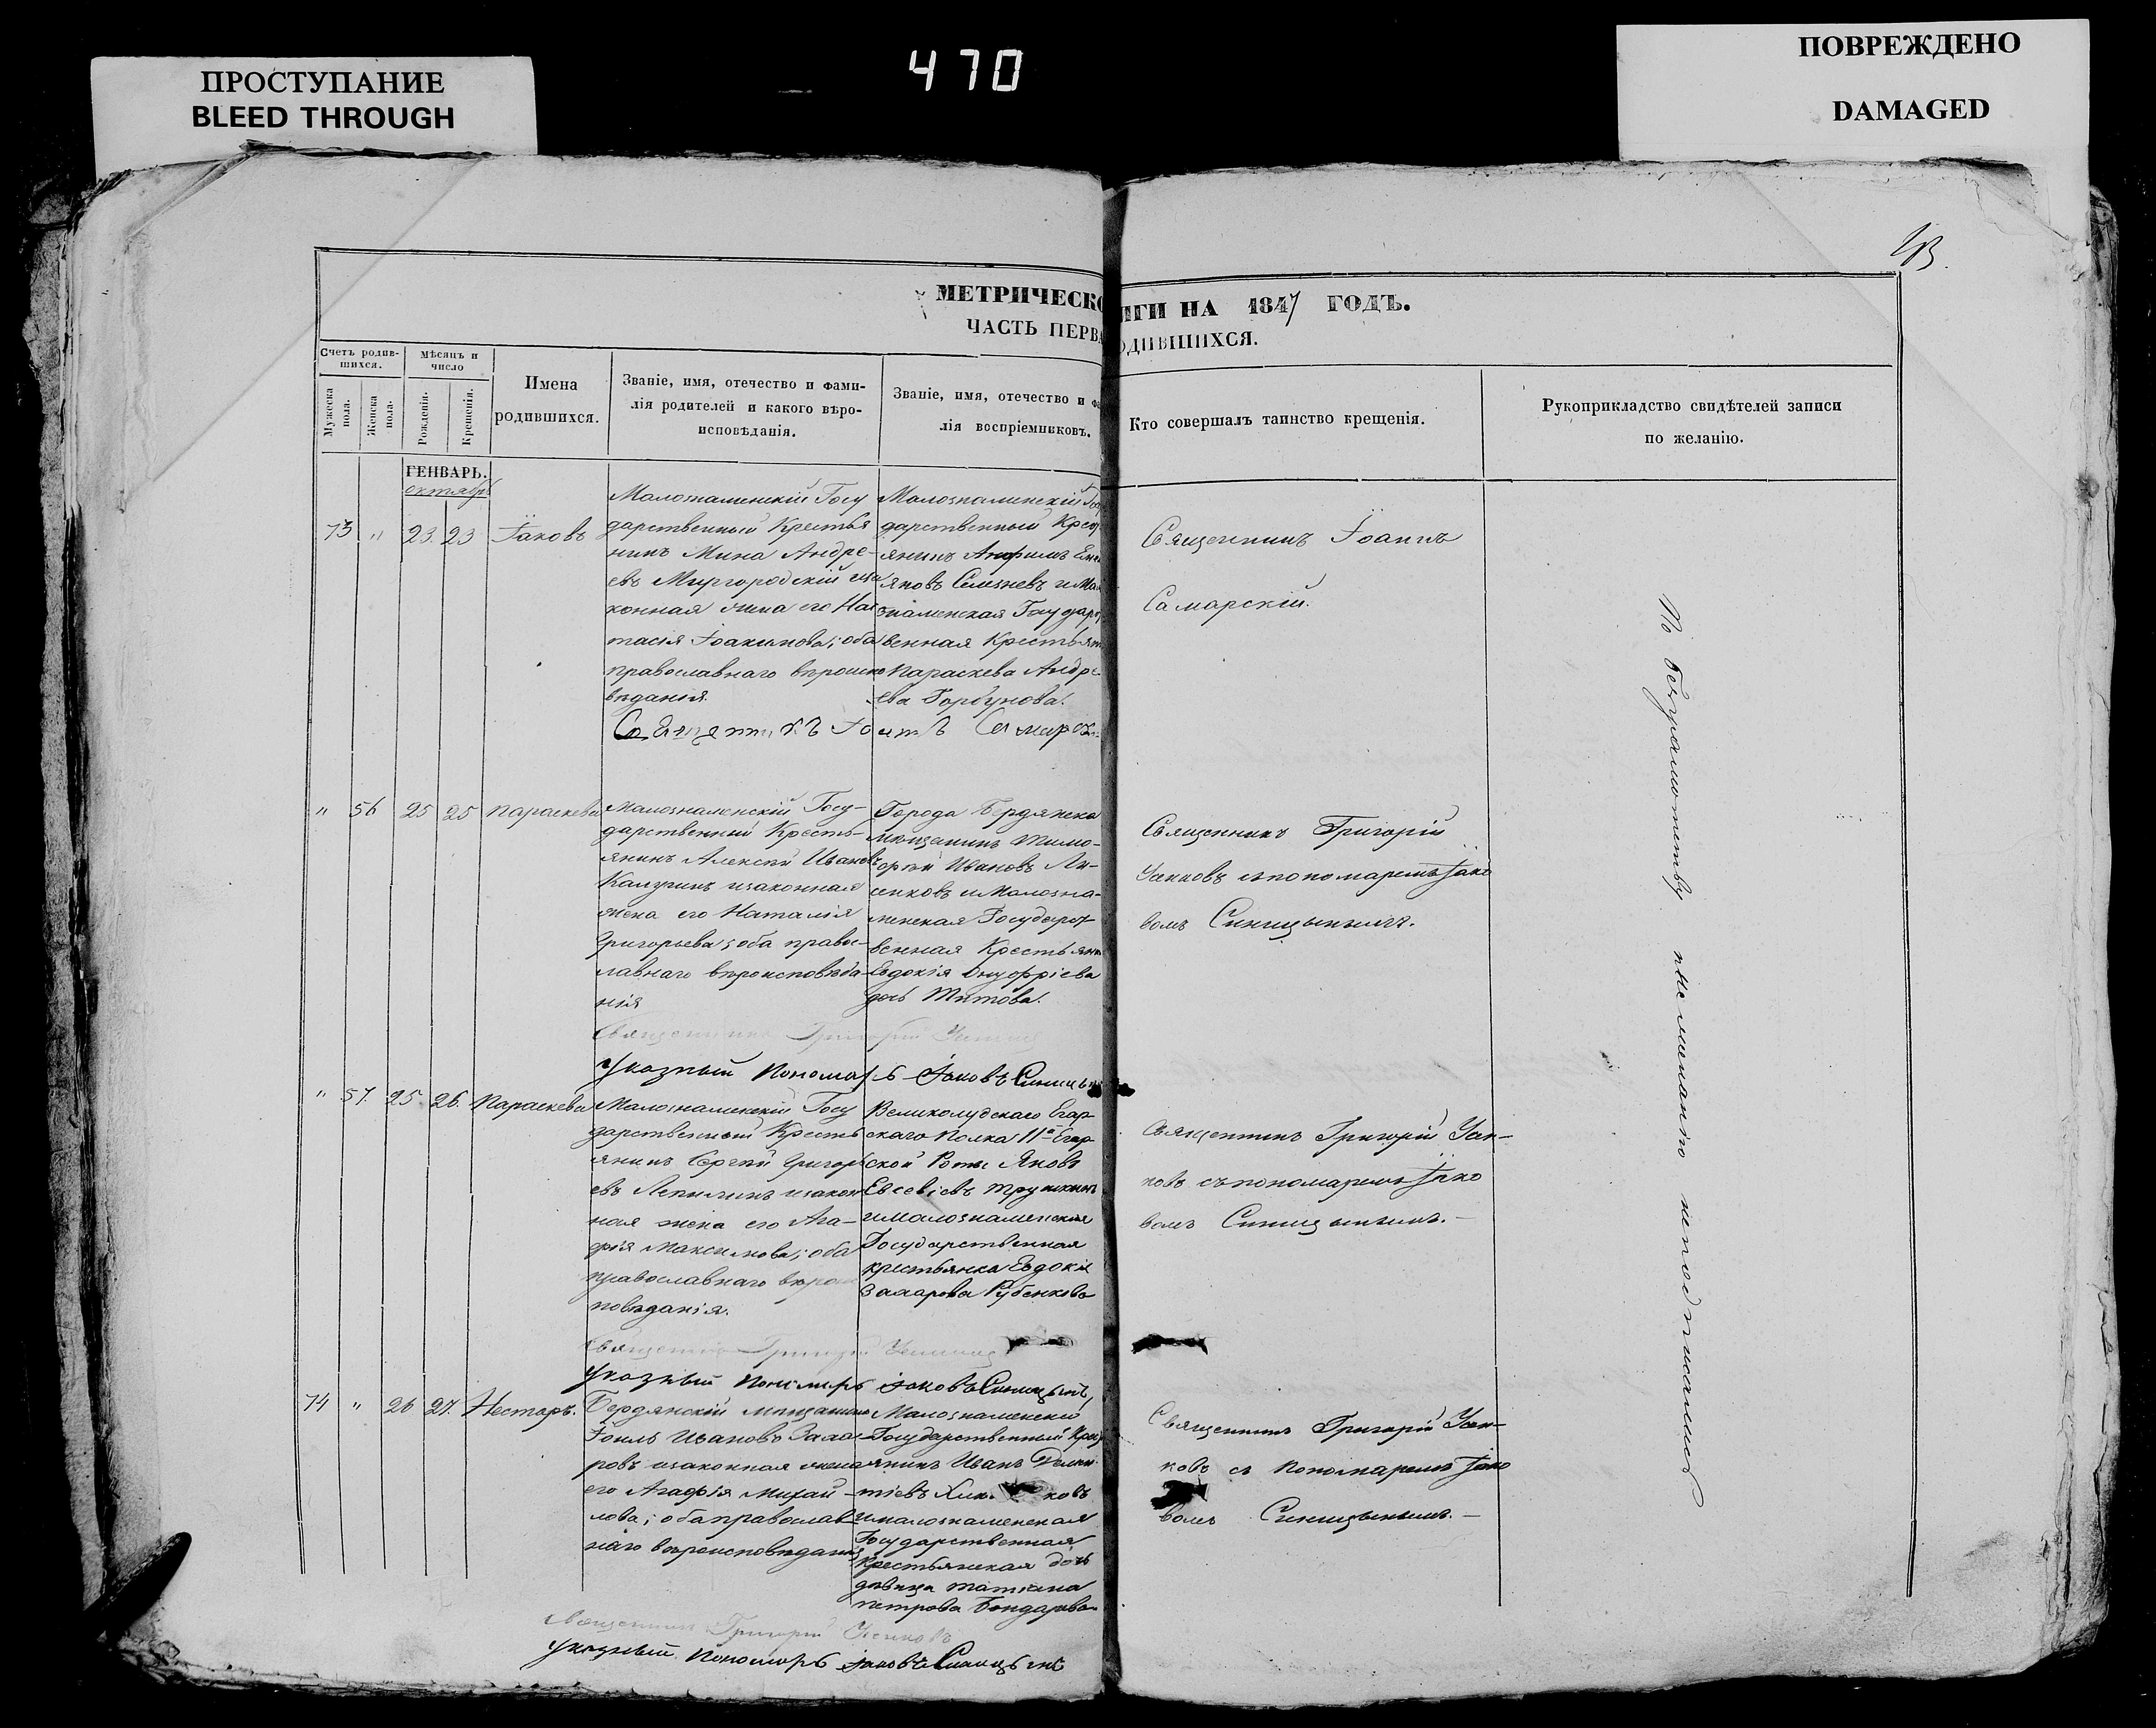 ПРОСТУПАНИЕ
BLEED THROUGH
470
ПОВРЕЖДЕНО
DAMAGED
МЕТРИЧЕСКО ИГИ НА 1847 ГОДЪ.
ЧАСТЬ ПЕРВА ОДИВШИХСЯ.
Счетъ родив-
шихся.
Мужеска
пола.
Женска
пола.
Мѣсяцъ и
число
Рожденія.
Крещенія.
Имена
родившихся.
Званіе, имя, отечество и фами-
лія родителей и какого вѣро-
исповѣданія.
Званіе, имя, отечество и фа
лія воспріемниковъ.
Кто совершалъ таинство крещенія.
Рукоприкладство свидѣтелей записи
по желанію.
ГЕНВАРЬ.
октябрь
73 " 23. 23 Іаковъ
Малознаменскій Госу
дарственный Крестья
нинъ Мина Андре-
евъ Миргородскій иза
конная жена его Нас
тасія Іоакимова; оба
православнаго вѣроиспо
вѣданія.
Малознаменскій Гос
дарственный Крест
янинъ
яновъ Селезневъ и Мал
знаменская Государс
венная Крестьян
Параскева Андре
ева Горбунова.
Священникъ Іоаннъ
Самарскій.
Священникъ Іоаннъ Самарск
" 56 25 25 Параскева
Малознаменскій Госу-
дарственный Кресть-
янинъ Алексѣй Ивановъ
Калугинъ изаконная
жена его Наталія
Григорьева; оба право-
лавнаго вѣроисповѣда
нія
Города Бердянска
мѣщанинъ Тимо-
ѳей Ивановъ Ли-
сенковъ и Малозна-
менская Государст
венная Крестьянк
Евдокія Онуфріева
дочь Титова.
Священникъ Григорій
Усиковъ съ пономаремъ Іако
вомъ Синицынымъ.
Священникъ Григорій Усиков
Указный Пономарь Іаковъ Синицын
" 57. 25. 26. Параскева
Малознаменскій Госу
дарственный Кресть
янинъ Сергѣй Григорь
евъ изакон
ная жена его Ага-
фія Максимова; оба
православнаго вѣроис
повѣданія.
Великолуцкаго Егер
скаго Полка 11й Егер
ской Роты Яковъ
Евсевіевъ Трушкинъ
и малознаменская
Государственная
крестьянка Евдокія
Захарова Рубенкова
Священникъ Григорій Уси-
ковъ съ пономаремъ Іако
вомъ Синицынымъ.—
Священникъ Григорій Усиков
Указный Пономарь Іаковъ Синицынъ,
74 " 26 27. Несторъ.
Бердянскій мѣщанинъ
Іоиль Ивановъ Заха-
ровъ изаконная жена
его Агафія Михай-
лова; оба православ
наго вѣроисповѣданія
Малознаменскій
Государственный Крест
янинъ Иванъ Демен
тіевъ
и малознаменская
Государственная
Крестьянская дочь
дѣвица Татіана
Петрова Бондарева
Священникъ Григорій Уси-
ковъ съ Пономаремъ Іако
вомъ Синицынымъ.—
Священникъ Григорій Усиковъ
Указный Пономарь Іаковъ Синицынъ
По безграмотству